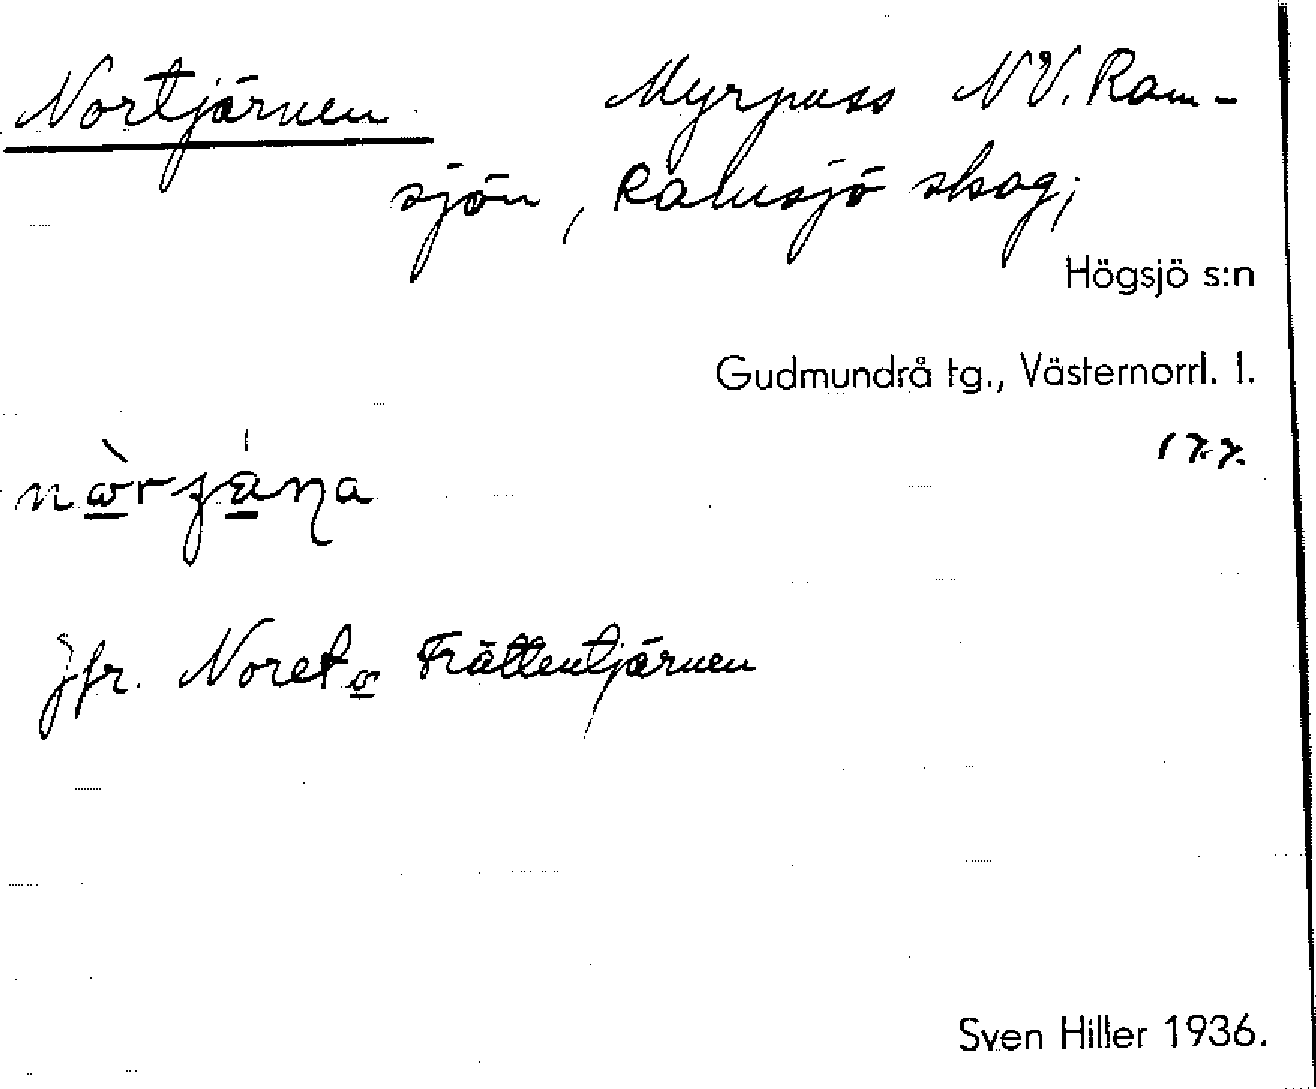 Nortjärnen Myrpuss NV. Ram-
sjön, Ramsjö skog;
Högsjö s:n
Gudmundrå tg., Västernorrl. l.
Jfr. Noret o Frättentjärnen
Sven Hiller 1936.